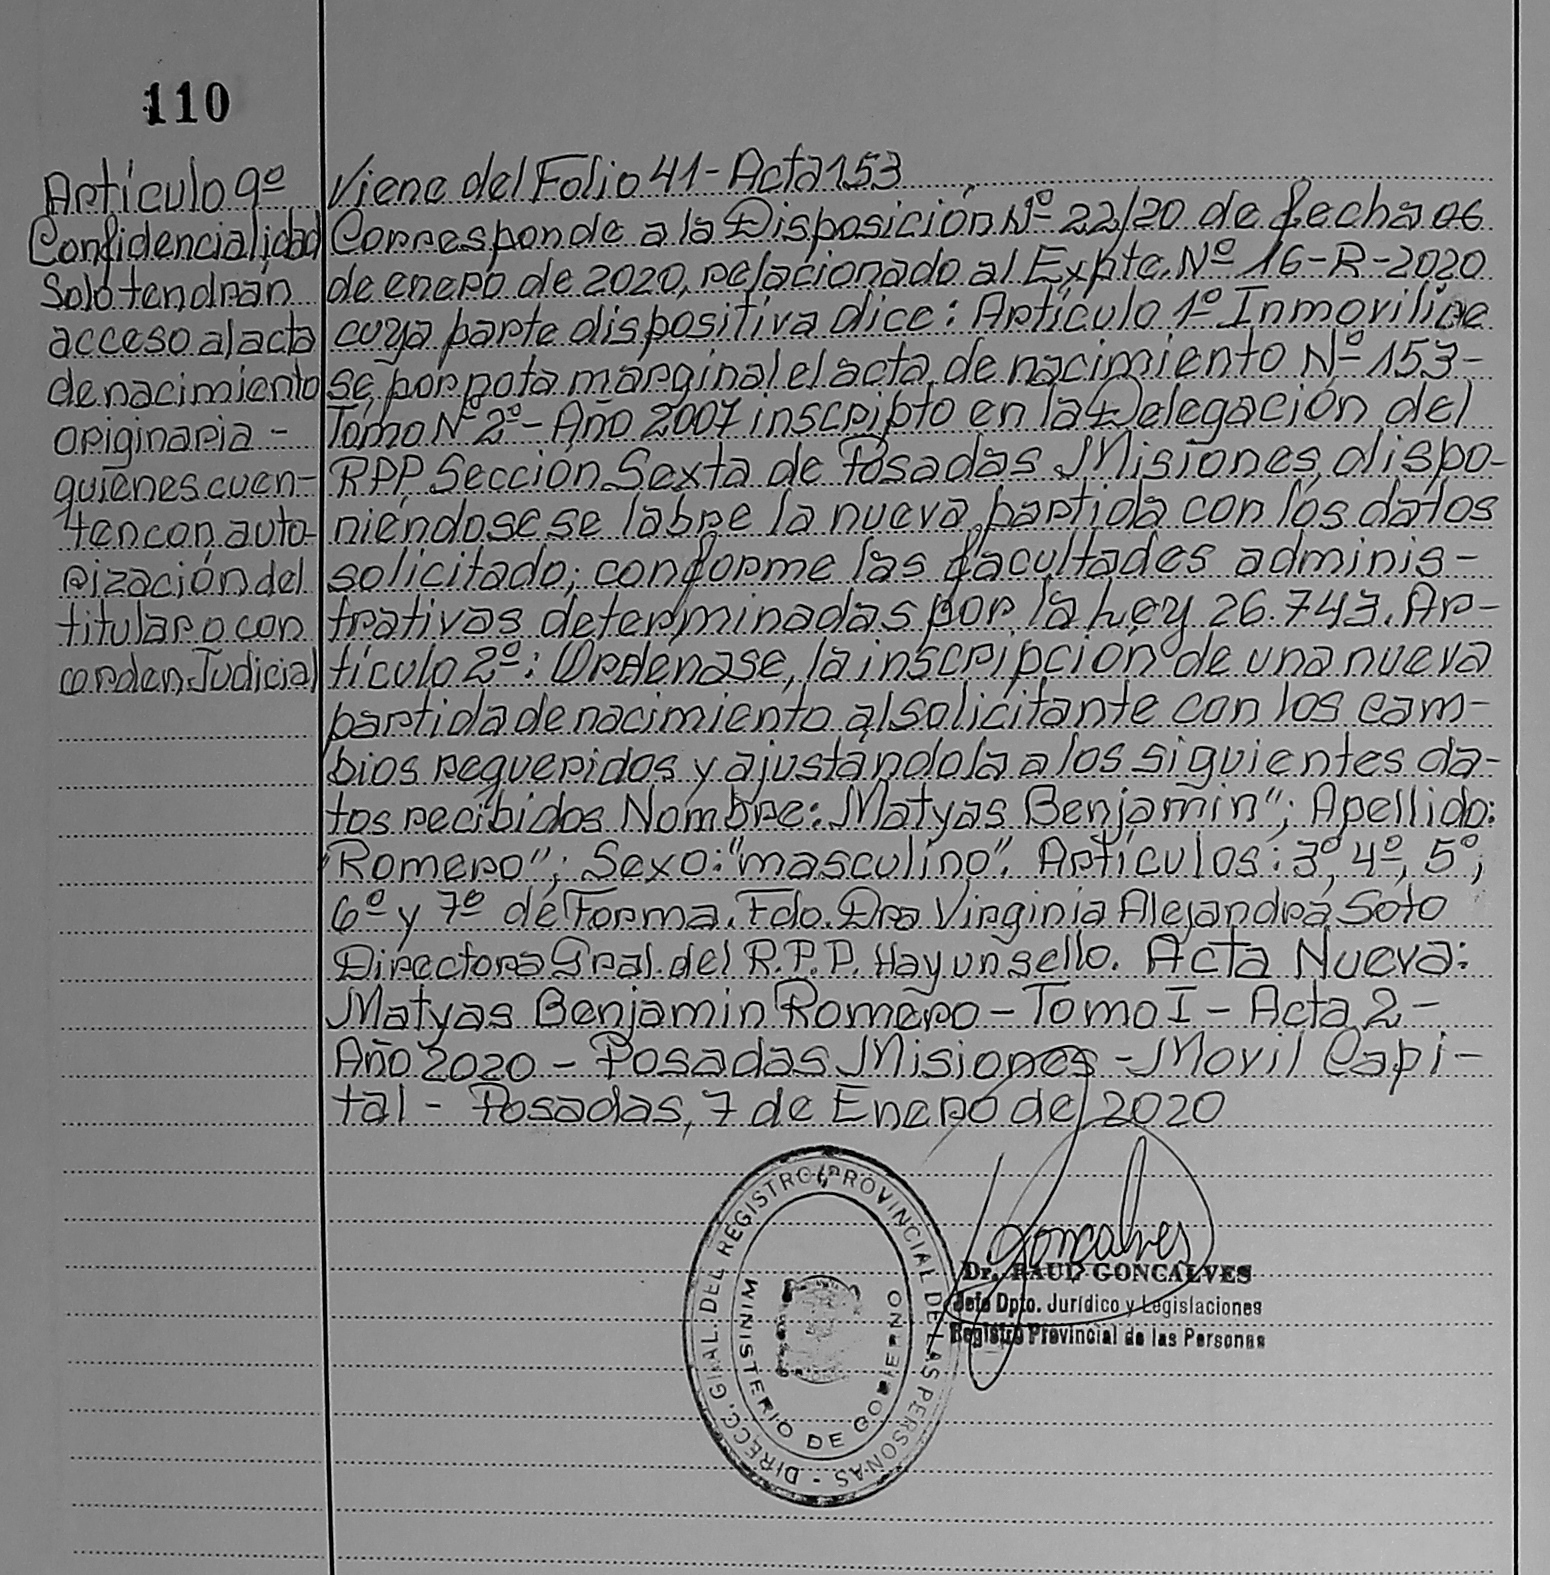 110
Artículo 9º
Confidencialidad
Solo tendrán
acceso al acta
de nacimiento
originaria -
quienes cuen-
ten con auto-
rización del
titular o con
orden Judicial
Viene del Folio 41 - Acta 153
Corresponde a la Disposición Nº 22/20 de fecha 06
de enero de 2020, relacionado al Expte. Nº 16-R-2020
cuya parte dispositiva dice: Artículo 1º Inmovilice
se, por nota marginal el acta de nacimiento Nº 153-
Tomo Nº 2º - Año 2007 inscripto en la Delegación del
RPP Sección Sexta de Posadas Misiones, dispo-
niéndose se labre la nueva partida con los datos
solicitado; conforme las facultades adminis-
trativas determinadas por la Ley 26.743. Ar-
tículo 2º: Ordénase, la inscripción de una nueva
partida de nacimiento al solicitante con los cam-
bios requeridos y ajustándola a los siguientes da-
tos recibidos Nombre: Matyas Benjamin"; Apellido:
"Romero"; Sexo: "masculino". Artículos: 3º, 4º, 5º,
6º y 7º de Forma. Fdo. Dra Virginia Alejandra Soto
Directora Gral. del R.P.P. Hay un sello. Acta Nueva:
Matyas Benjamin Romero - Tomo I - Acta 2 -
Año 2020 - Posadas Misiones - Movil Capi-
tal - Posadas, 7 de Enero de 2020
DIRECC. GRAL. DEL REGISTRO PROVINCIAL DE LAS PERSONAS -
MINISTERIO DE GOBIERNO
Goncalves
Dr. RAUL GONCALVES
Jefe Dpto. Jurídico y Legislaciones
Registro Provincial de las Personas